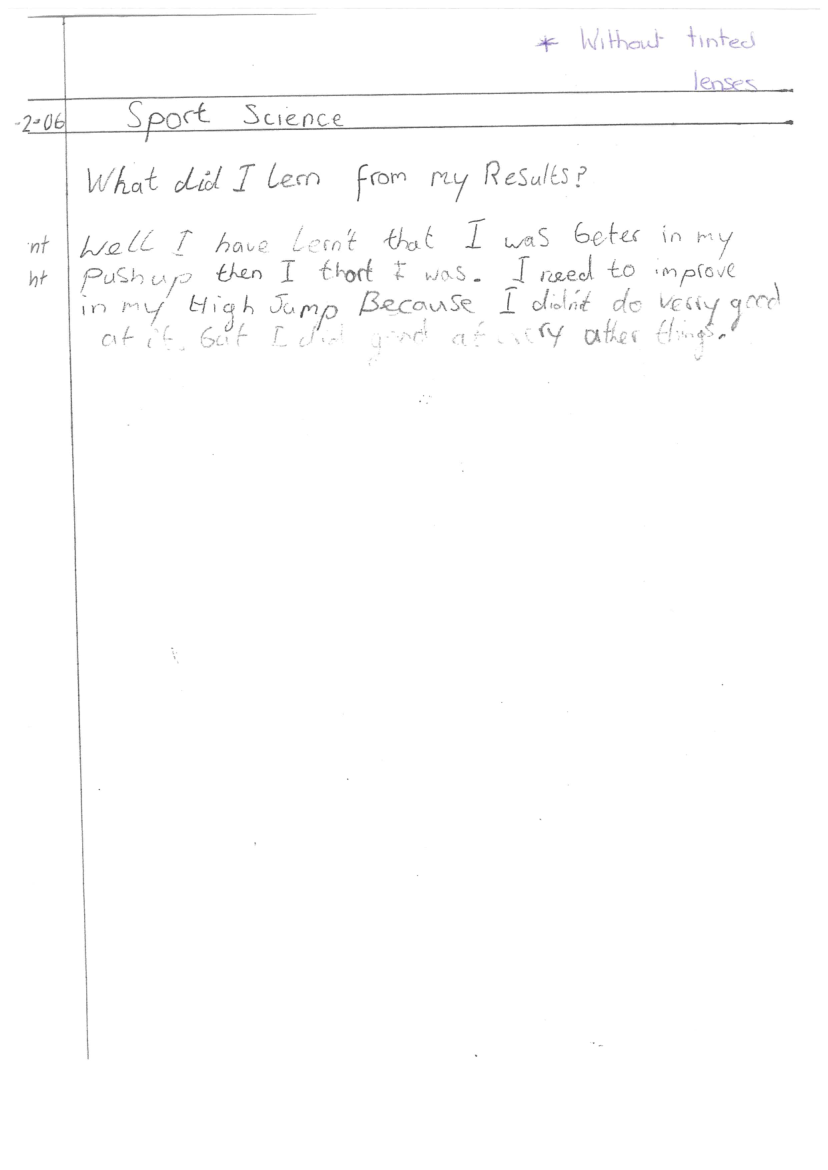 * Without tinted
lenses
-2-06 Sport Science
What did I lern from my Results?
nt Well I have Lern't that I was beter in my
ht Pushup then I thort I was. I need to improve
in my High Jump Because I did'nt do verry good
at it. but I did good at ather things.